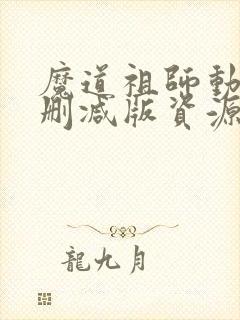 魔道祖師動
刪減版資源
龍九月